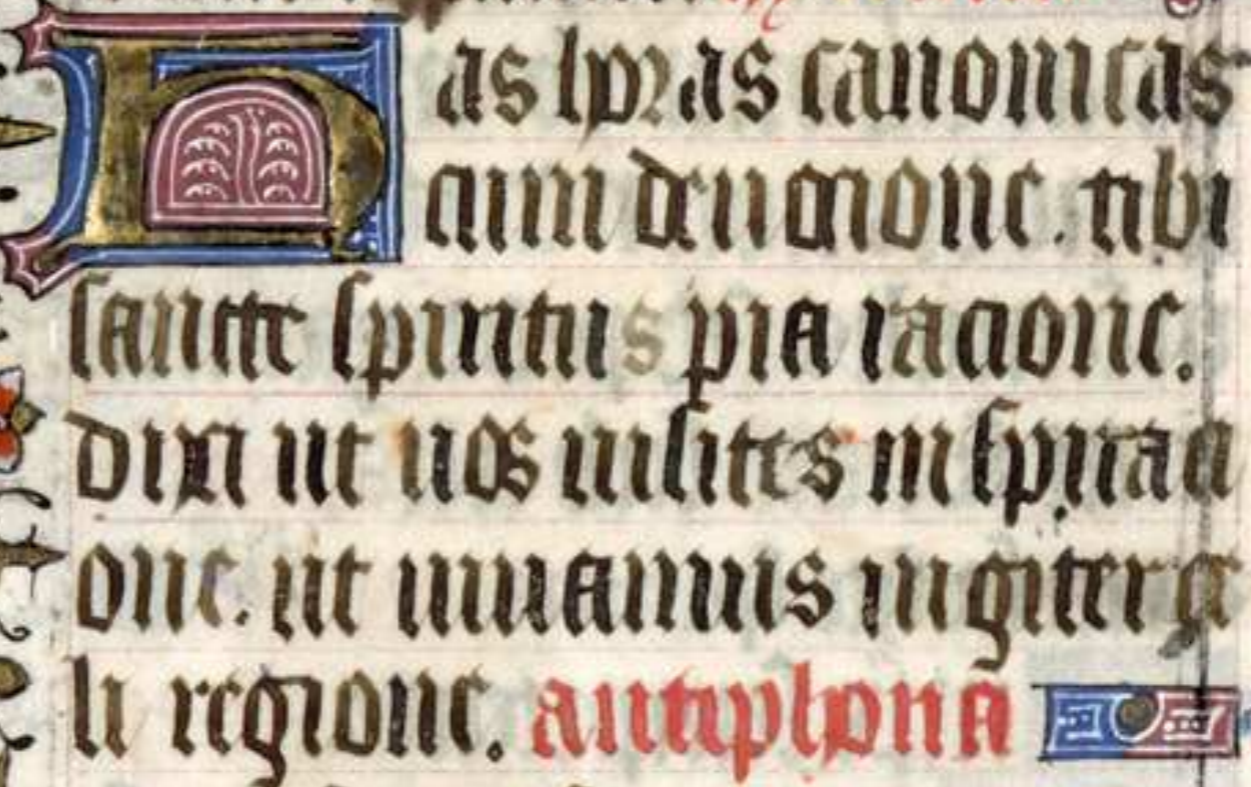 Has horas canonicas
cum deuocione. tibi
sancte spiritus pia racione.
dixi ut nos uisites inspiraci
one. ut uiuamus iugiter ce
li regione. antiphona